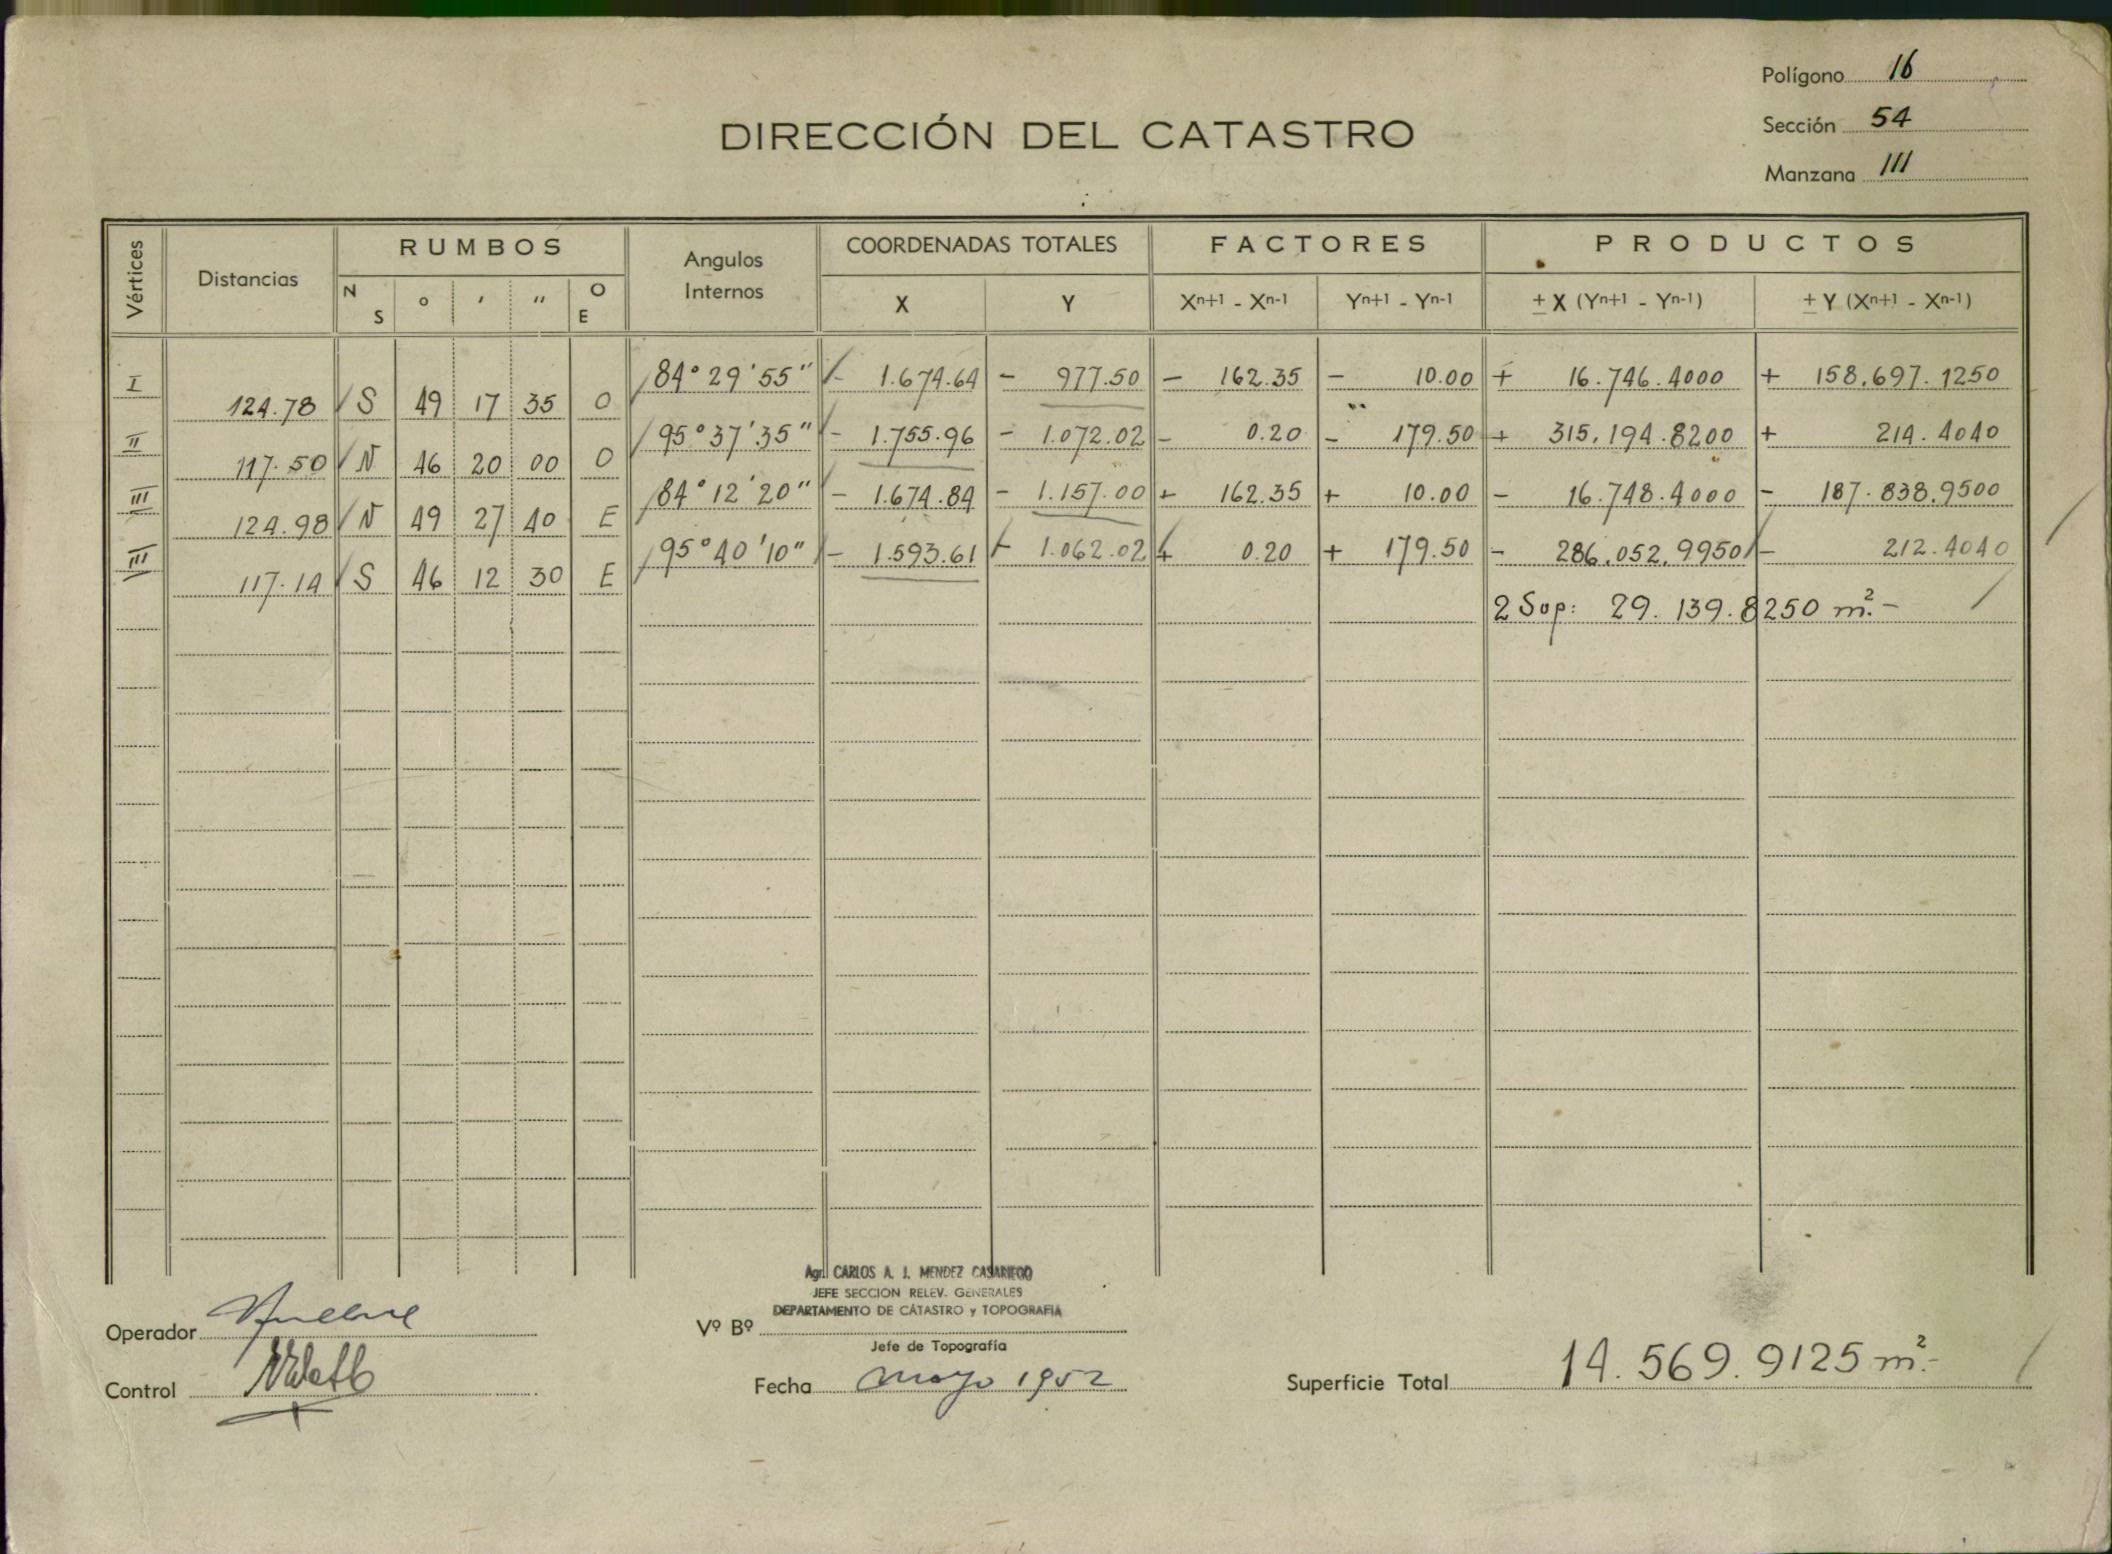 Polígono 16
DIRECCIÓN DEL CATASTRO
Sección 54
Manzana 111
Vértices Distancias RUMBOS Angulos Internos COORDENADAS TOTALES FACTORES PRODUCTOS
N S ° ' " O E X Y Xn+1 - Xn-1 Yn+1 - Yn-1 ± X (Yn+1 - Yn-1) ± Y (Xn+1 - Xn-1)
I 84° 29' 55" - 1.674.64 - 977.50 - 162.35 - 10.00 + 16.746.4000 + 158.697.1250
124.78 S 49 17 35 O
II 95° 37' 35" - 1.755.96 - 1.072.02 - 0.20 - 179.50 + 315.194.8200 + 214.4040
117.50 N 46 20 00 O
III 84° 12' 20" - 1.674.84 - 1.157.00 + 162.35 + 10.00 - 16.748.4000 - 187.838.9500
124.98 N 49 27 40 E
IIII 95° 40' 10" - 1.593.61 - 1.062.02 + 0.20 + 179.50 - 286.052.9950 - 212.4040
117.14 S 46 12 30 E
2 Sup: 29.139.8250 m².-
Agr. CARLOS A. J. MENDEZ CASARIEGO
JEFE SECCION RELEV. GENERALES
DEPARTAMENTO DE CATASTRO y TOPOGRAFIA
Operador
Vº Bº
Jefe de Topografía
Control
Fecha mayo 1952
Superficie Total 14.569.9125 m².-